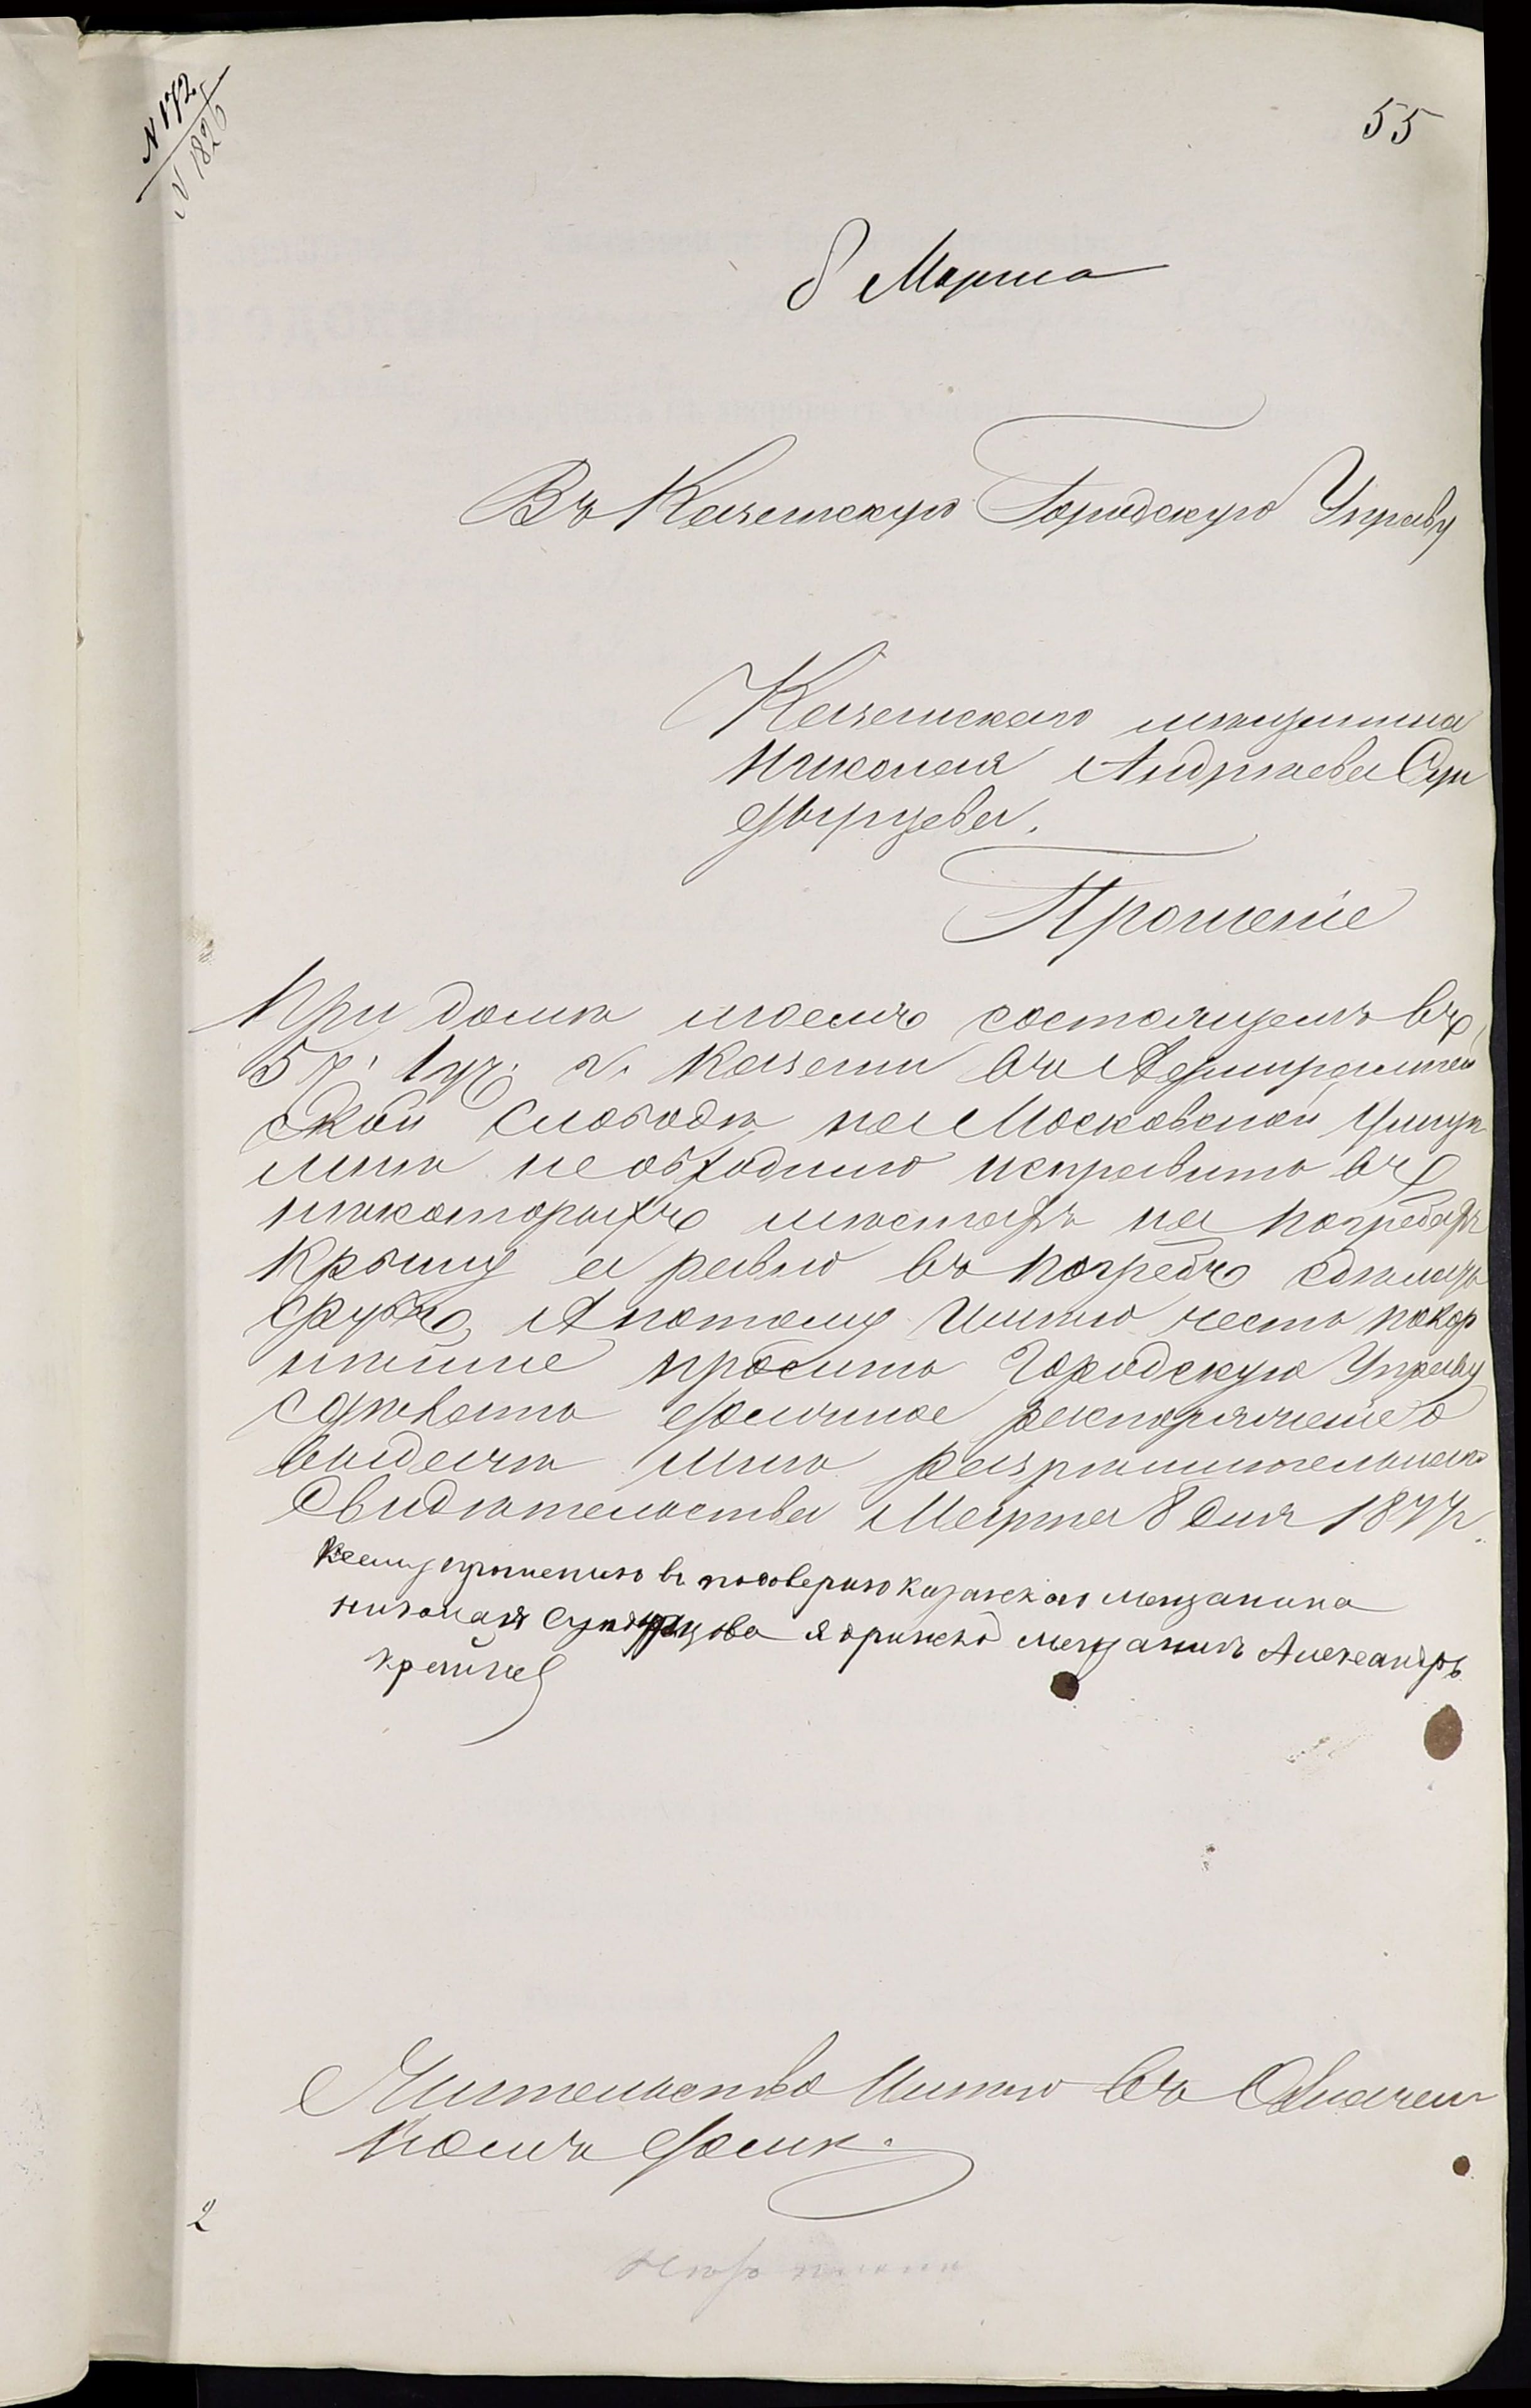 N 172
N 1826
55
8 Марта
Въ Казанскую Городскую Управу
Казанскаго мѣщанина
Николая Андрѣева Сун
дырцева.
Прошеніе
При домѣ моемъ состоящемъ въ
5 ч. 1 уч. г. Казани въ Адмиралтей
ской слободѣ на Московской улицѣ
мнѣ необходимо исправить въ
нѣкоторыхъ мѣстахъ на погребахъ
крышу а равно въ погребъ сдѣлать
срубъ, А потому имѣю честь покор
нѣйше просить Городскую Управу
сдѣлать должное распоряжение о
выдачѣ мнѣ разрѣшительнаго
Свидѣтельства Марта 8 дня 1877 г.
Ксему прошению въ подоверию казанского мещанина
николая Сундырцова я мещанинъ Александръ
Жительство имѣю въ Означен
номъ домѣ.
2